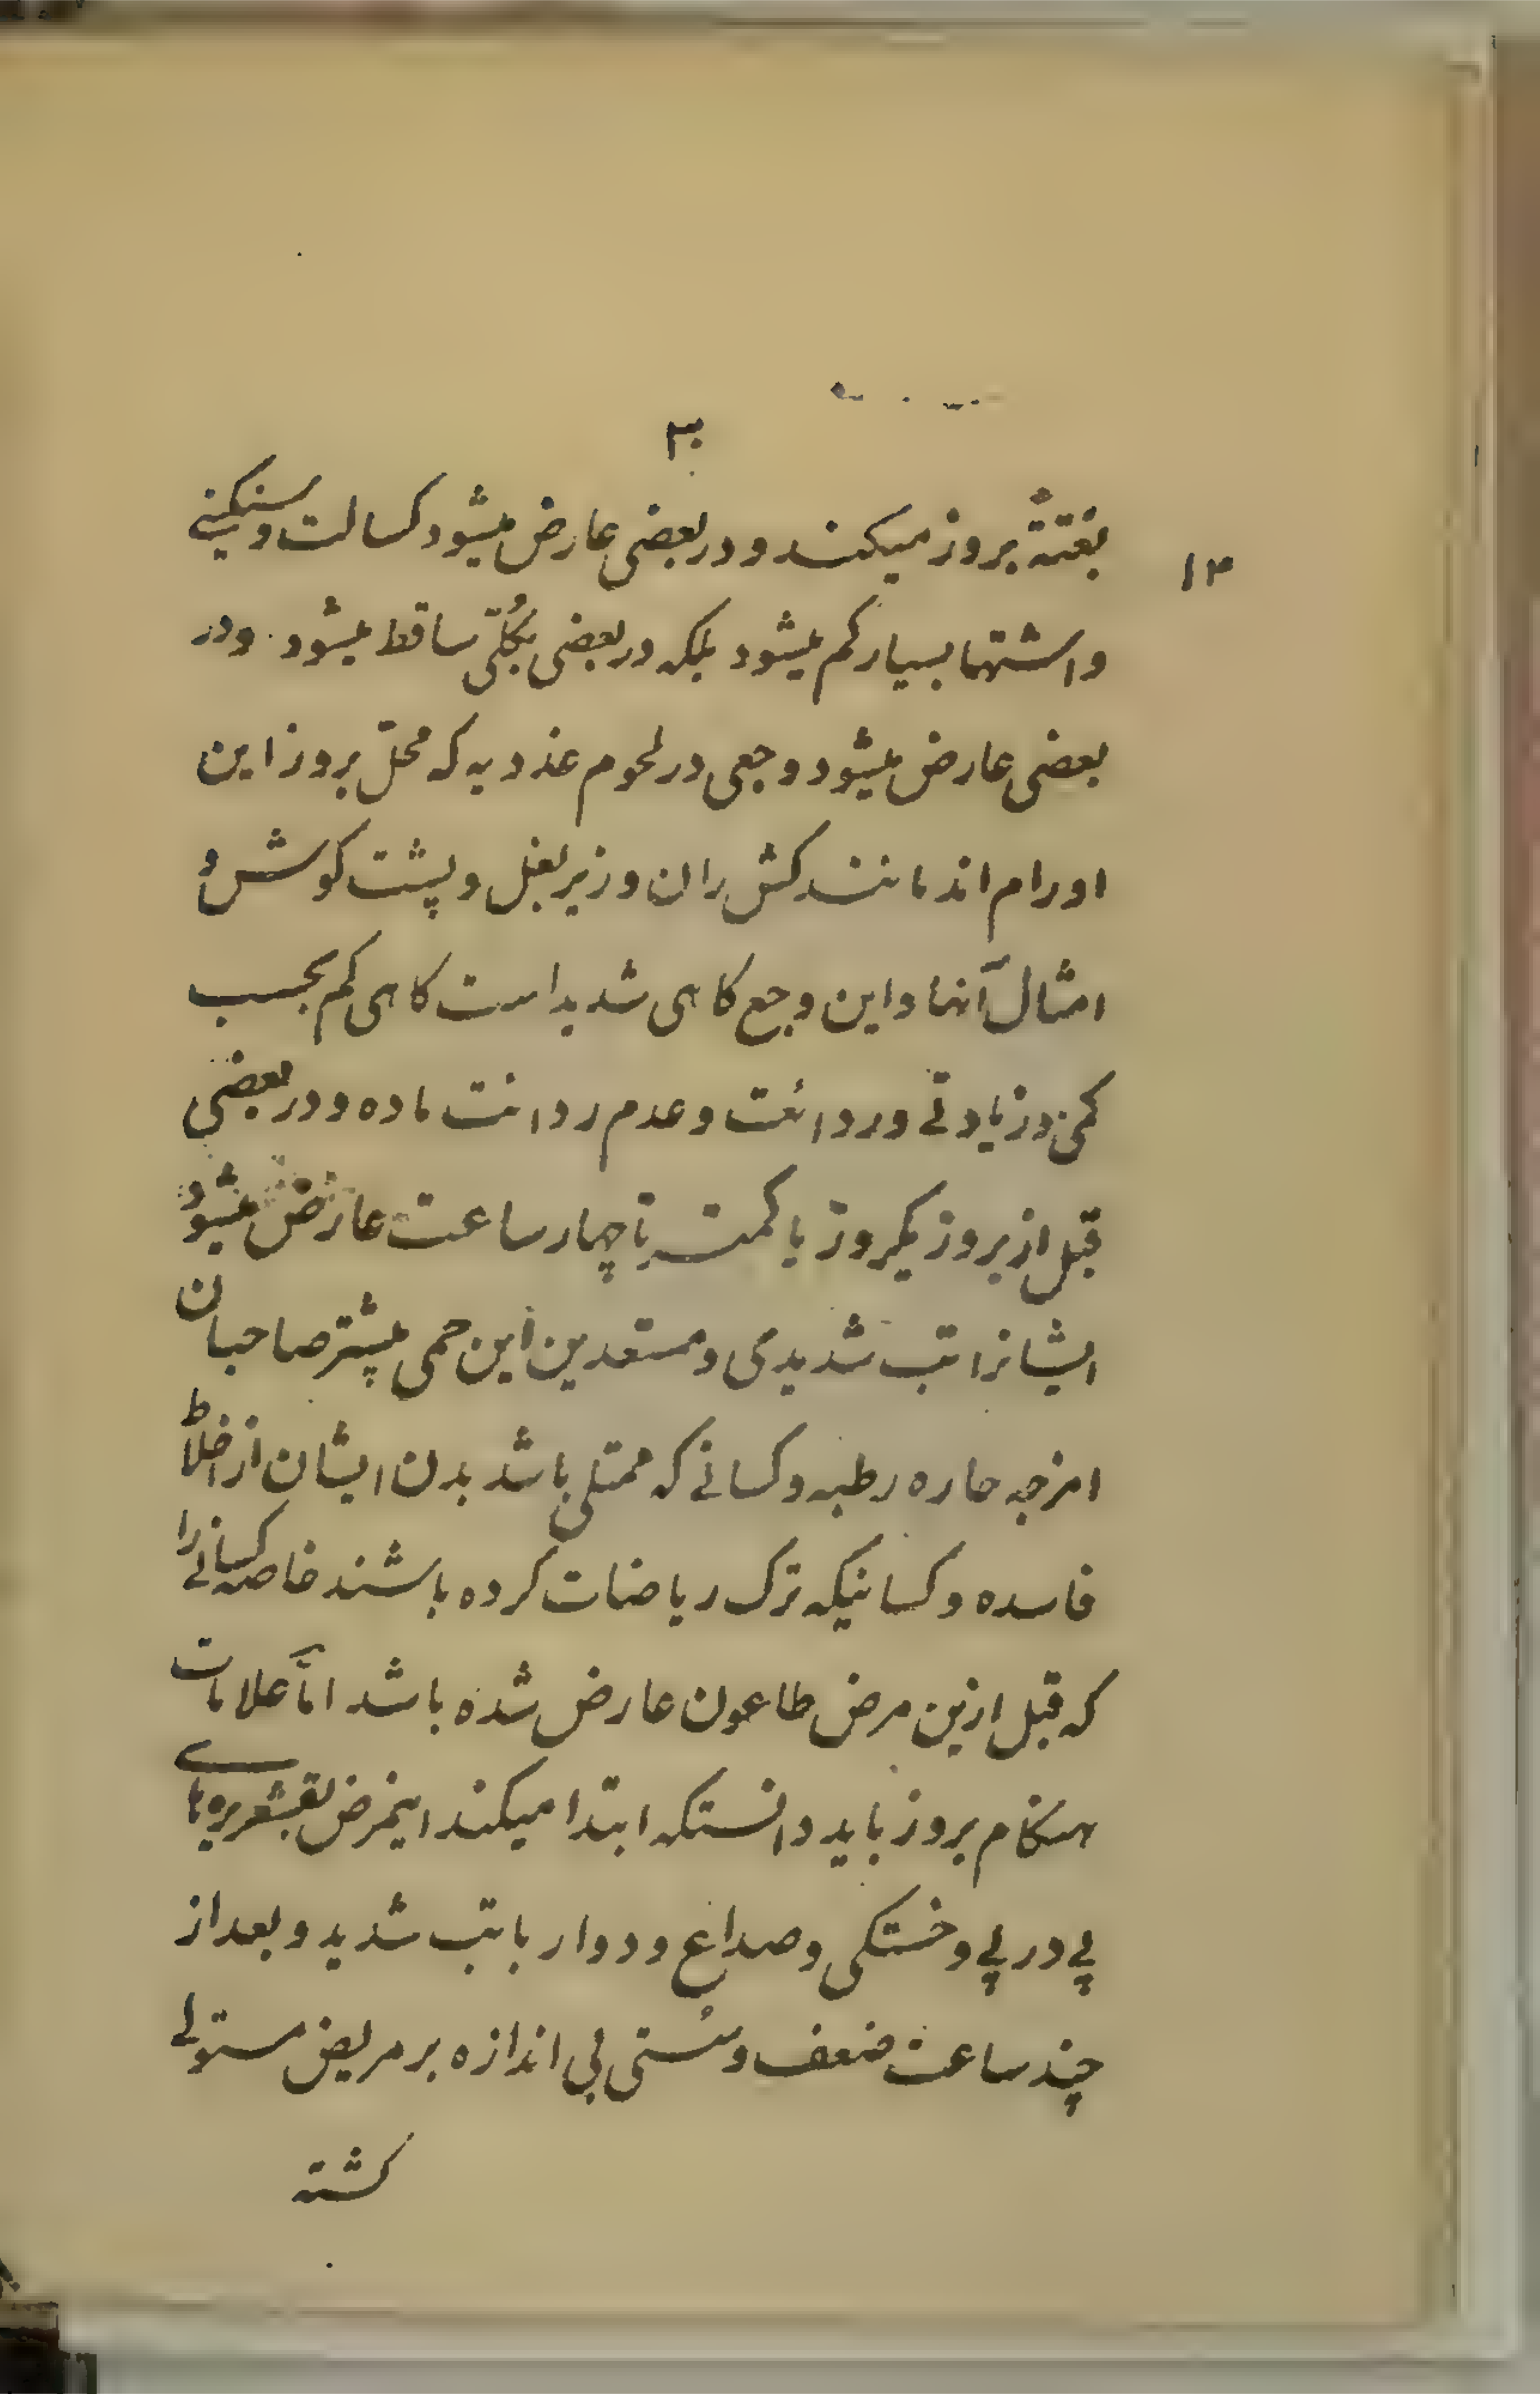 ۳
۱۳
بغتةً بروز میکند و در بعضی عارض میشود کسالت و سنکینے
و اشتها بسیار کم میشود بلکه در بعضی بکُلّی ساقط میشود. و در
بعضی عارض میشود وجعی در لحوم غذدیه که محلّ بروز این
اورام اند مانند کش ران و زیر بغل و پشت کوش و
امثال آنها و این وجع کاهی شدید است کاهی کم بحسب
کمی و زیادتے و ردائت و عدم ردائت ماده و در بعضی
قبل از بروز یکروز یا کمتر تا چهار ساعت عارض میشود
ایشانرا تب شدیدی و مستعدین این حمی بیشتر صاحبان
امزجه حاره رطبه و کسانے که ممتلی باشد بدن ایشان از اخلاط
فاسده و کسانیکه ترک ریاضات کرده باشند خاصه کسانے را
که قبل ازین مرض طاعون عارض شده باشد امّا علامات
هنکام بروز باید دانستکه ابتدا میکند اینمرض بقشعریره‌هاے
پے در پے و خستکی و صداع و دوار با تب شدید و بعد از
چند ساعت ضعف و سُستی بی اندازه بر مریض مستولے
کشته